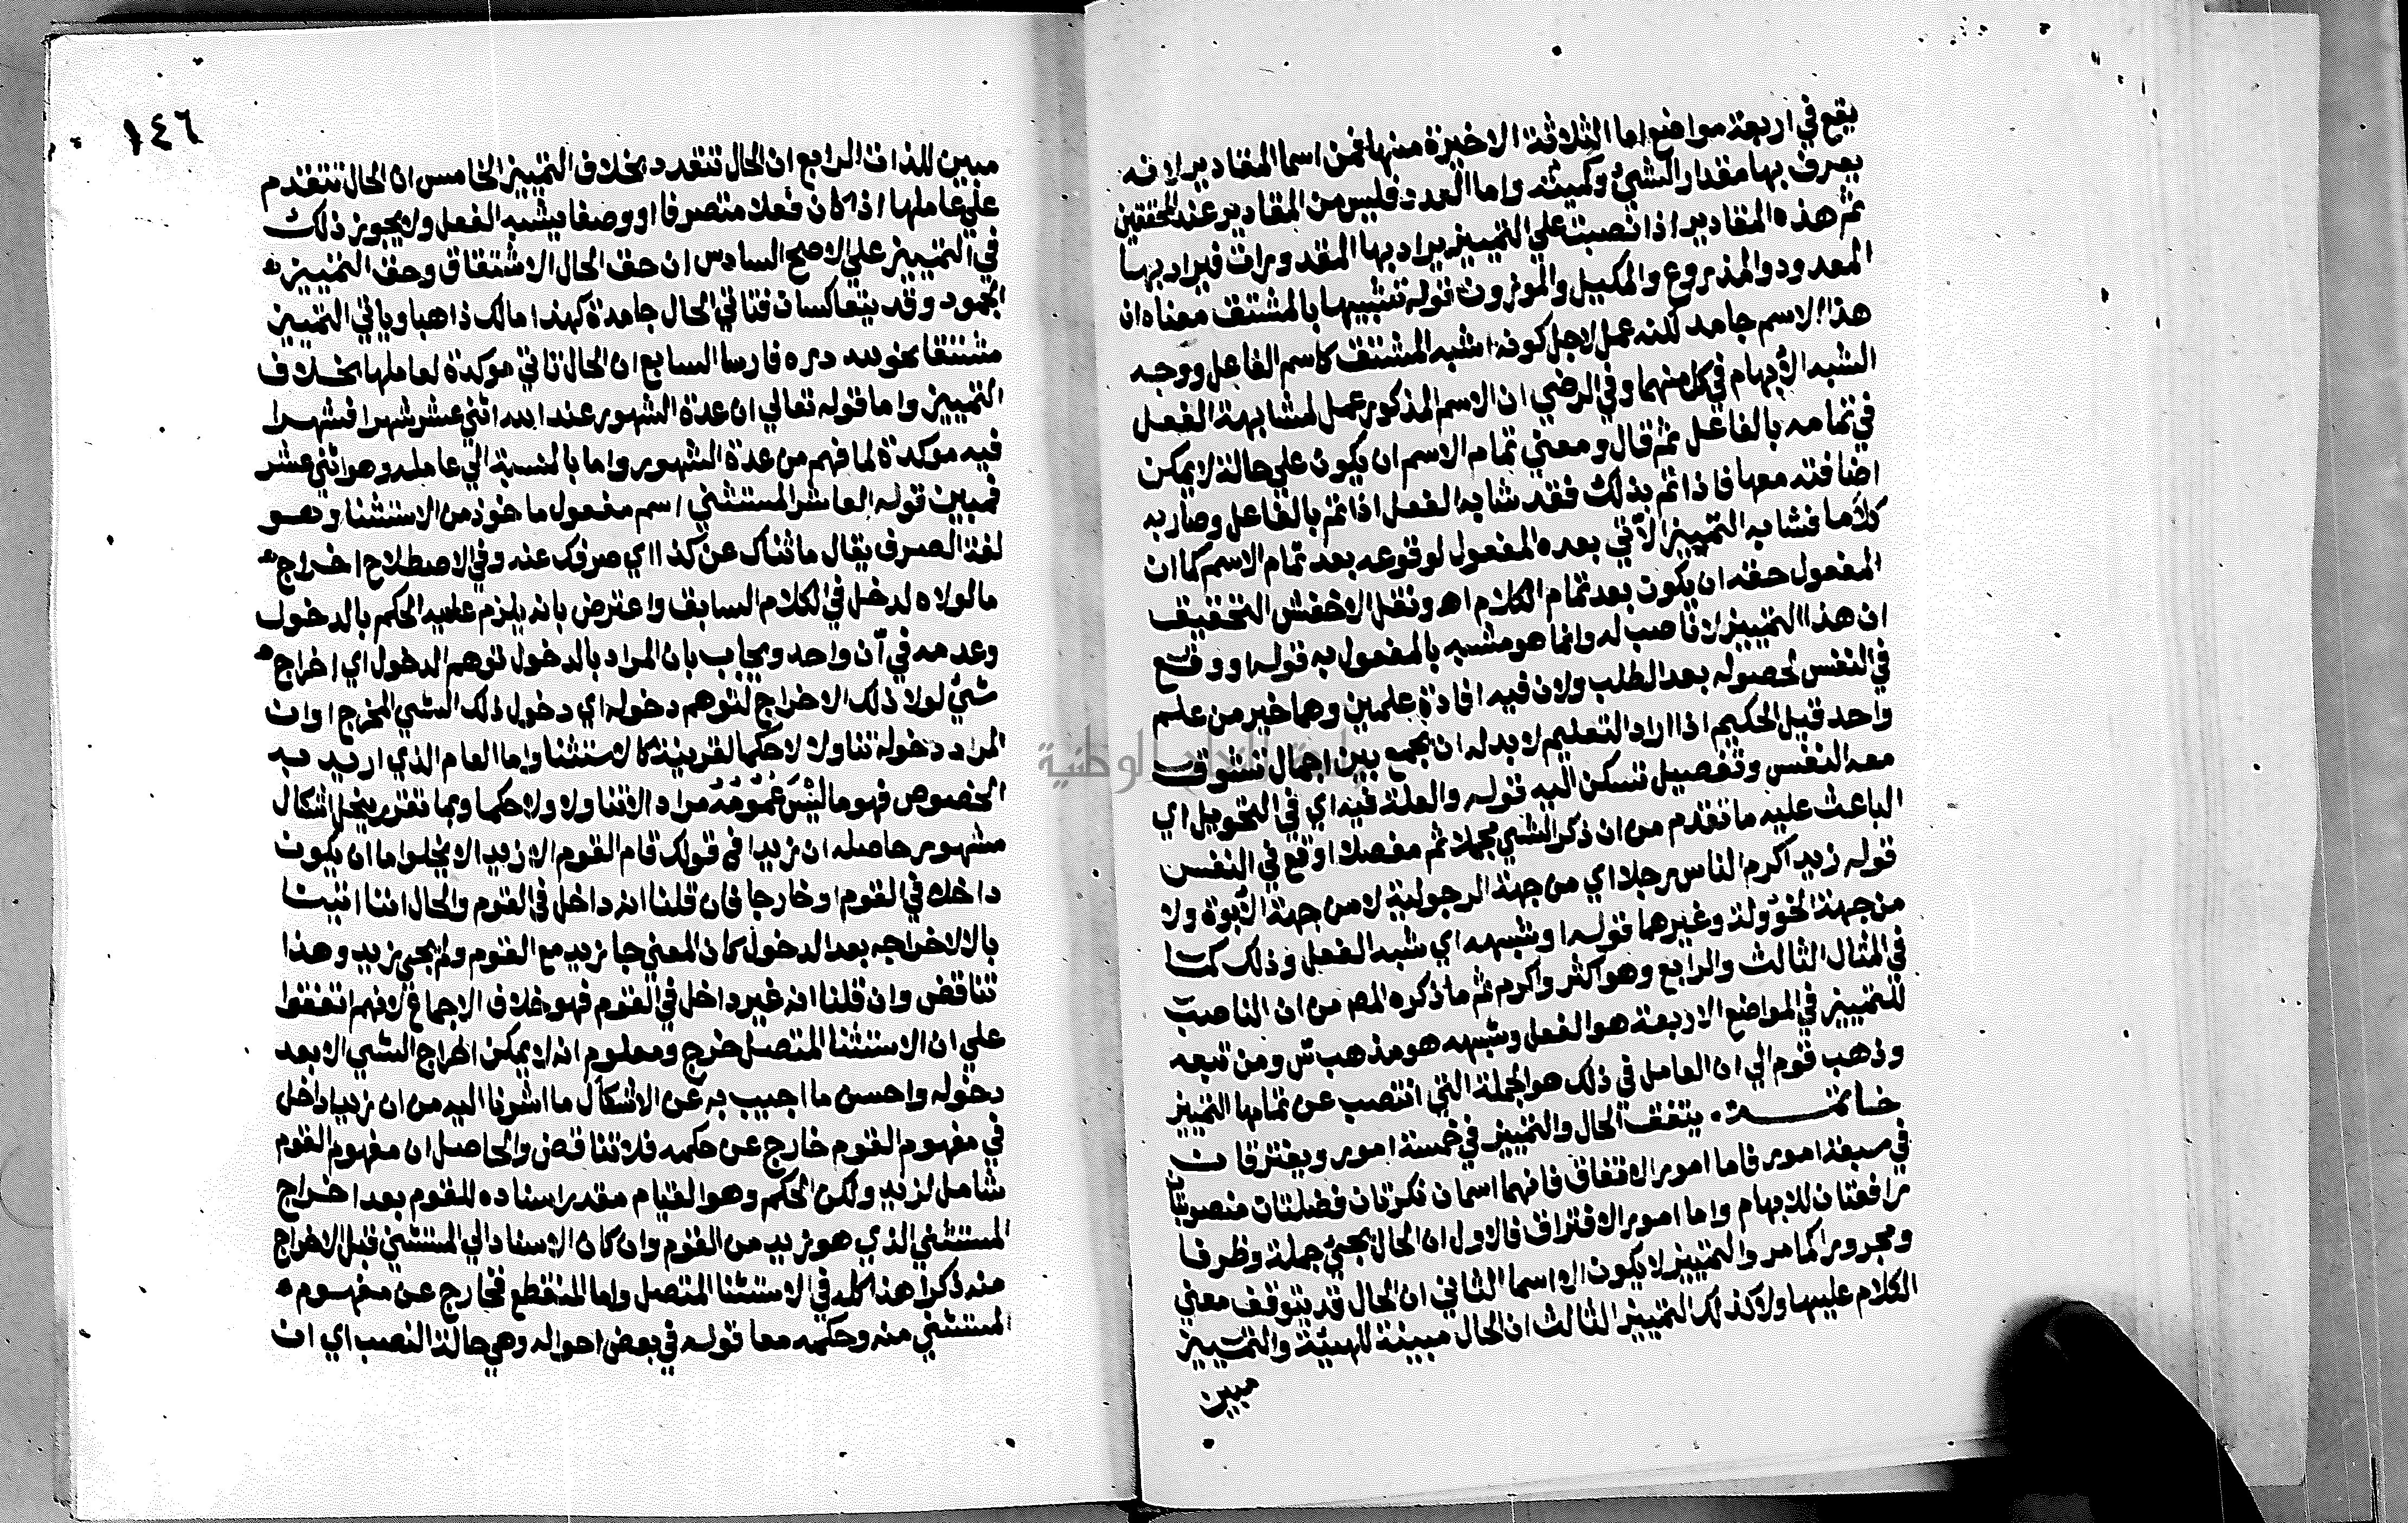 يقع في اربعة مواضع اما الثلاثة الاخيرة منها فمن اسما المقادير لانه
يعرف بها مقدار الشيئ وكميته واما العدد فليس من المقادير عند المحققين
ثم هذه المقادير اذا نصبت علي التمييز يراد بها المقدورات فيراد بها
المعدود والمذروع والمكيل والموزون قوله تشبيها بالمشتق معناه ان
هذا الاسم جامد لكنه عمل لاجل كونه اشبه المشتق كاسم الفاعل ووجه
الشبه الابهام في كل منهما وفي الرضي ان الاسم المذكور عمل لمشابهة الفعل
في تمامه بالفاعل ثم قال ومعني تمام الاسم ان يكون علي حالة لا يمكن
اضافته معها فاذا تم بذلك فقد شابه الفعل اذا تم بالفاعل وصار به
كلاما فشابه التمييز الآتي بعده المفعول لوقوعه بعد تمام الاسم كما ان
المفعول حقه ان يكون بعد تمام الكلام اهـ ونقل الاخفش التحقيق
ان هذا التمييز لا ناصب له وانما هو مشبه بالمفعول به قوله اووقع
في النفس لحصوله بعد الطلب ولان فيه افادة علمين وهما خير من علم
واحد قيل الحكيم اذا اراد التعليم لا بد له ان يجمع بين اجمال تتشوق
معه النفس وتفصيل تسكن اليه قوله والعلة فيه اي في التحويل اي
الباعث عليه ما تقدم من ان ذكر الشي مجملا ثم مفصلا اوقع في النفس
قوله زيد اكرم الناس رجلا اي من جهة الرجولية لا من جهة الابوة ولا
من جهة الخؤولة وغيرهما قوله او شبهه اي شبه الفعل وذلك كما
في المثال الثالث والرابع وهو اكثر واكرم ثم ما ذكره المص من ان الناصب
للتمييز في المواضع الاربعة هو الفعل وشبهه هو مذهب س ومن تبعه
وذهب قوم الي ان العامل في ذلك هو الجملة التي انتصب عن تمامها التمييز
خاتمة . يتفق الحال والتمييز في خمسة امور ويفترقان
في سبعة امور فاما امور الاتفاق فانهما اسمان نكرتان فضلتان منصوبتان
رافعتان للابهام واما امور الافتراق فالاول ان الحال يجئ جملة وظرفا
ومجرورا كما مر والتمييز لا يكون الا اسما الثاني ان الحال قد يتوقف معني
الكلام عليها ولا كذلك التمييز الثالث ان الحال مبينة للهيئة والتمييز
مبين
١٤٦
مبين للذات الرابع ان الحال تتعدد بخلاف التمييز الخامس ان الحال تتقدم
علي عاملها اذا كان فعلا متصرفا او وصفا يشبه الفعل ولا يجوز ذلك
في التمييز علي الاصح السادس ان حق الحال الاشتقاق وحق التمييز
الجمود وقد يتعاكسان فتاتي الحال جامدة كهذا مالك ذاهبا وياتي التمييز
مشتقا نحو لله دره فارسا السابع ان الحال تاتي موكدة لعاملها بخلاف
التمييز واما قوله تعالي ان عدة الشهور عند الله اثني عشر شهرا فشهرا
فيه موكدة لما فهم من عدة الشهور واما بالنسبة الي عامله وهو اثني عشر
فمبين قوله العاشر المستثني اسم مفعول ماخوذ من الاستثنا وهو
لغة الصرف يقال ما ثناك عن كذا اي صرفك عنه وفي الاصطلاح اخراج
مالولاه لدخل في الكلام السابق واعترض بانه يلزم عليه الحكم بالدخول
وعدمه في آن واحد ويجاب بان المراد بالدخول توهم الدخول اي اخراج
شيئ لولا ذلك الاخراج لتوهم دخوله اي دخول ذلك الشي المخرج او ان
المراد دخوله تناولا لا حكما لقرينة كالاستثنا واما العام الذي اريد به
الخصوص فهو ما ليْسَ عُمُومُهُ مراد الا تناولا ولا حكما وبما تقرر ينحل اشكال
مشهور حاصله ان زيدا في قولك قام القوم الا زيدا لا يخلوا ما ان يكون
داخلا في القوم او خارجا فان قلنا انه داخل في القوم والحال اننا اتينا
بالا لاخراجه بعد الدخول كان المعني جا زيد مع القوم ولم يجي زيد وهذا
تناقض وان قلنا انه غير داخل في القوم فهو خلاف الاجماع لانهم اتفقوا
علي ان الاستثنا المتصل مخرج ومعلوم انه لا يمكن اخراج الشي الا بعد
دخوله واحسن ما اجيب به عن الاشكال ما اشرنا اليه من ان زيدا داخل
في مفهوم القوم خارج عن حكمه فلا تناقض والحاصل ان مفهوم القوم
شامل لزيد ولكن الحكم وهو القيام مقدر اسناده للقوم بعد اخراج
المستثني الذي هو زيد من القوم وان كان الاسناد الي المستثني قبل الاخراج
منه ذكرا هذا كله في الاستثنا المتصل واما المنقطع فخارج عن مفهوم
المستثني منه وحكمه معا قوله في بعض احواله وهي حالة النصب اي ان